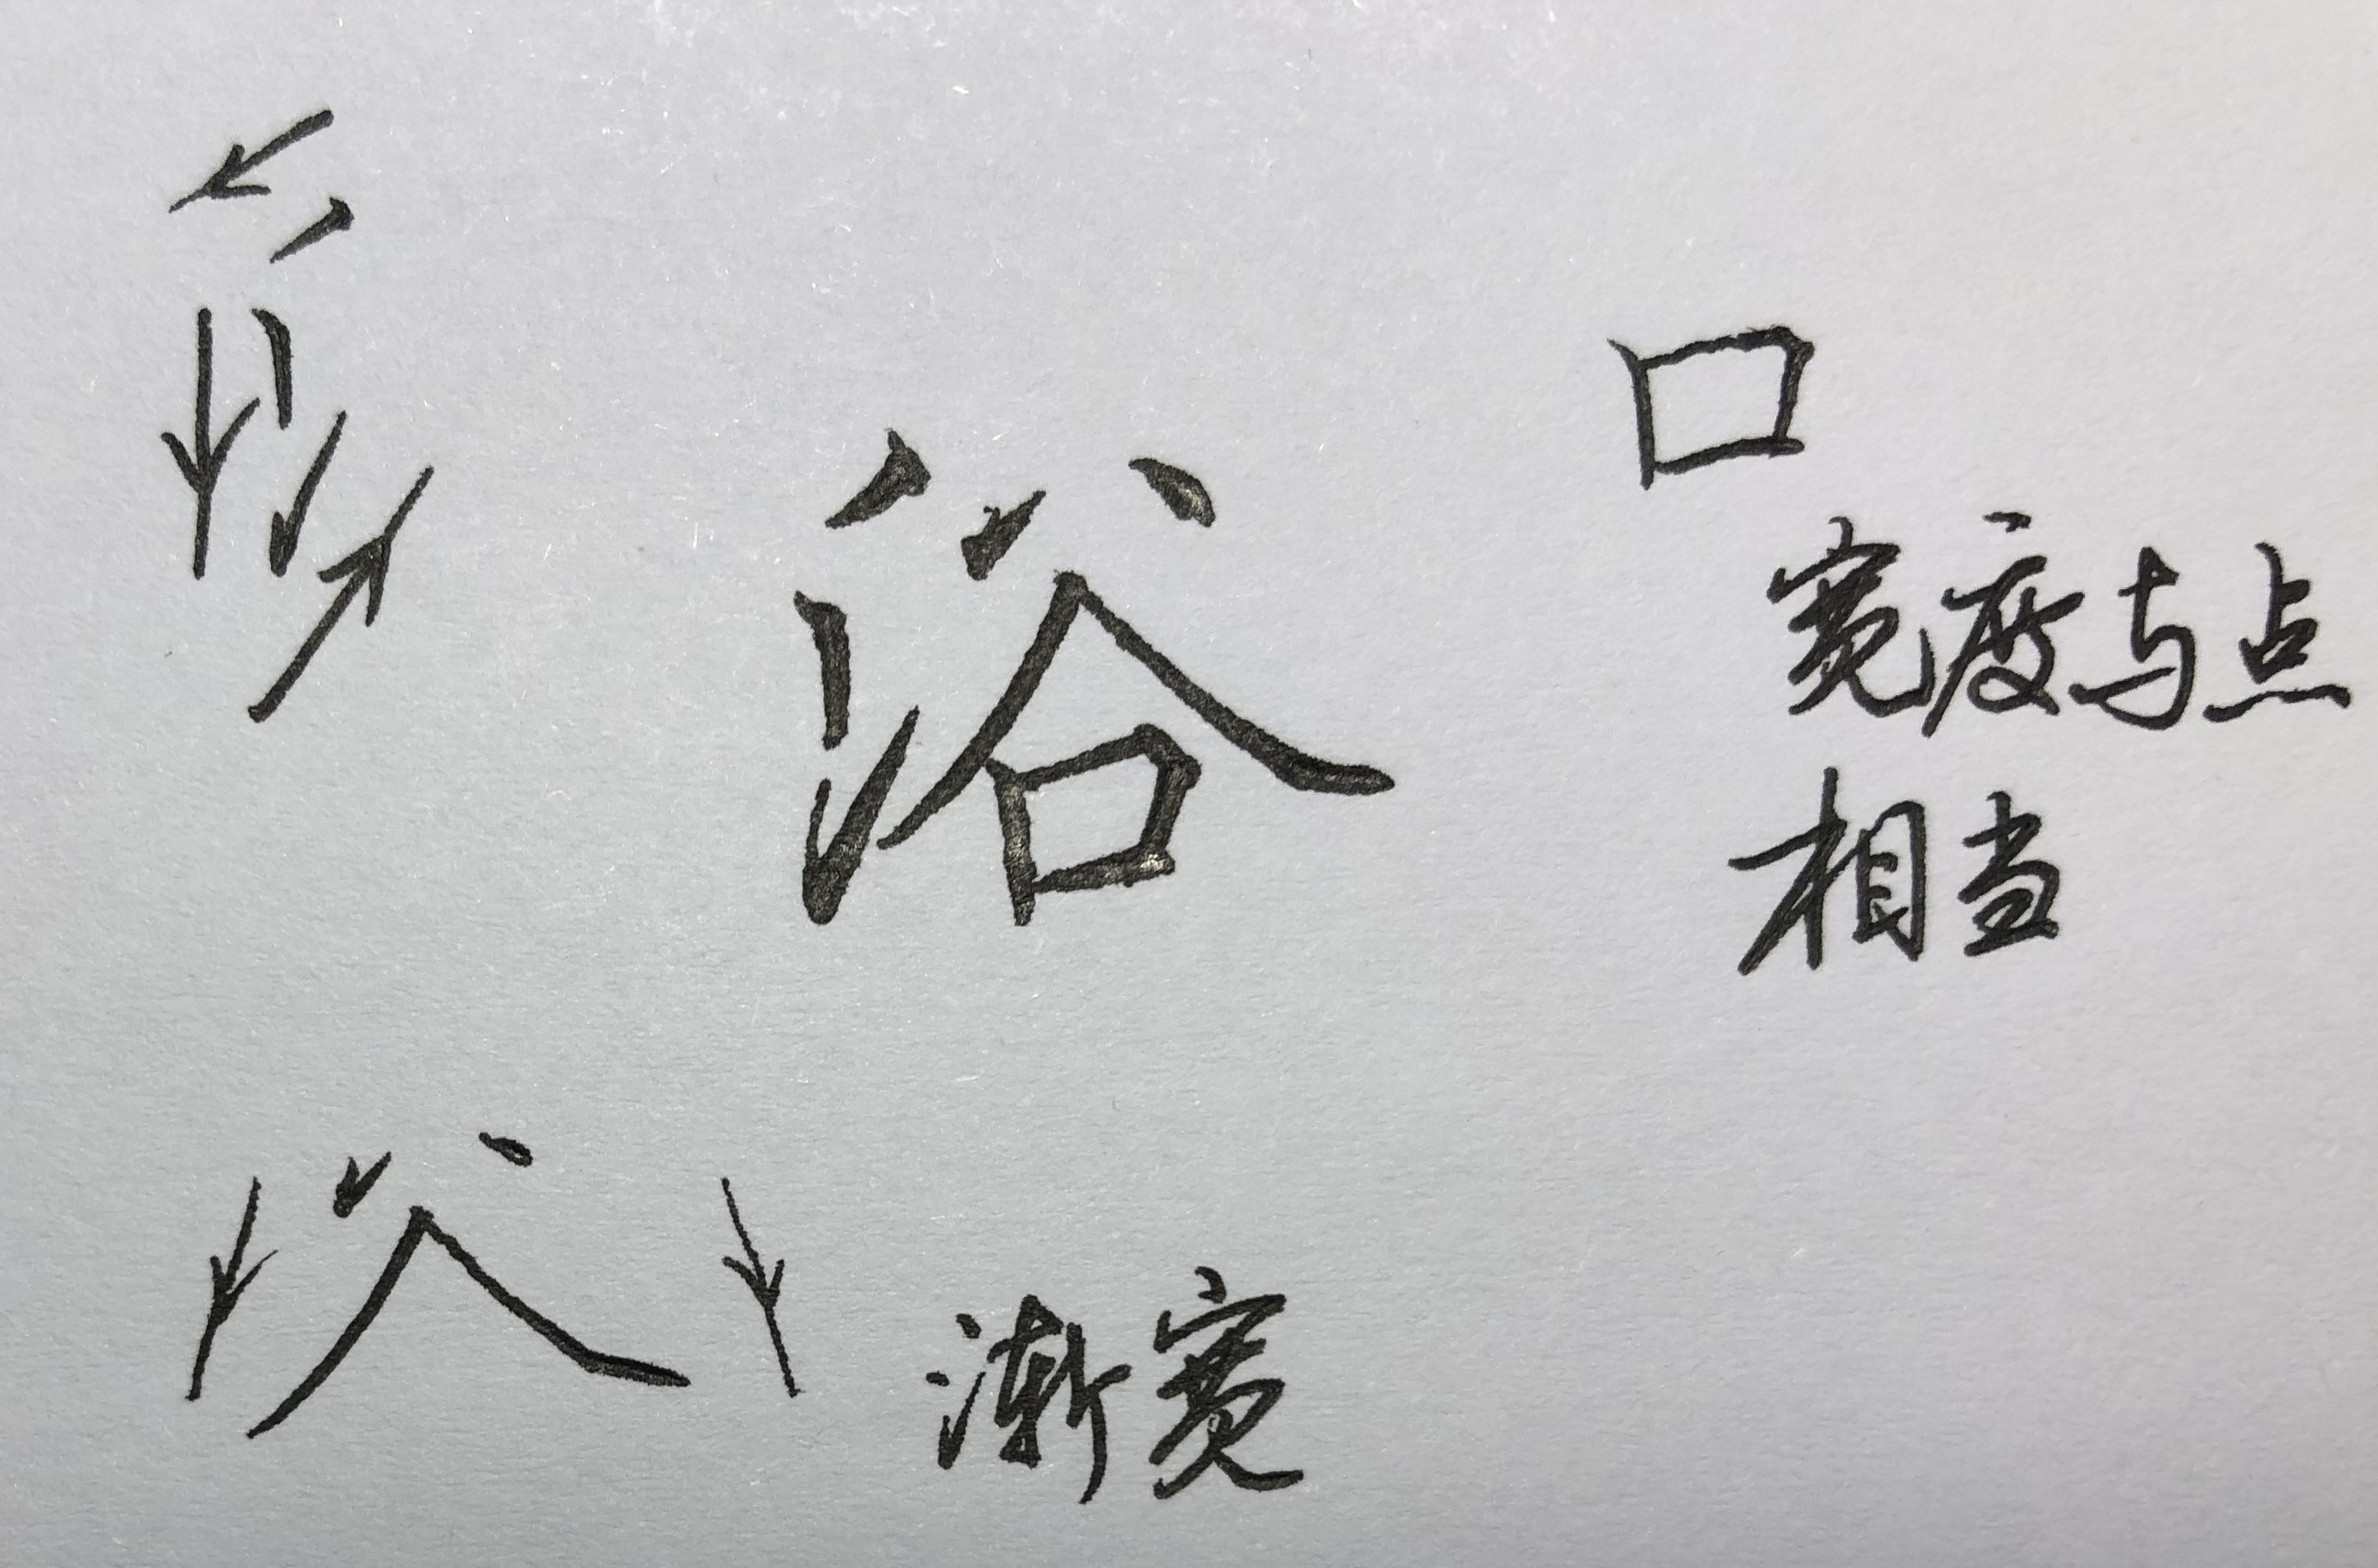 氵
浴
口
宽度与点
相当
渐宽